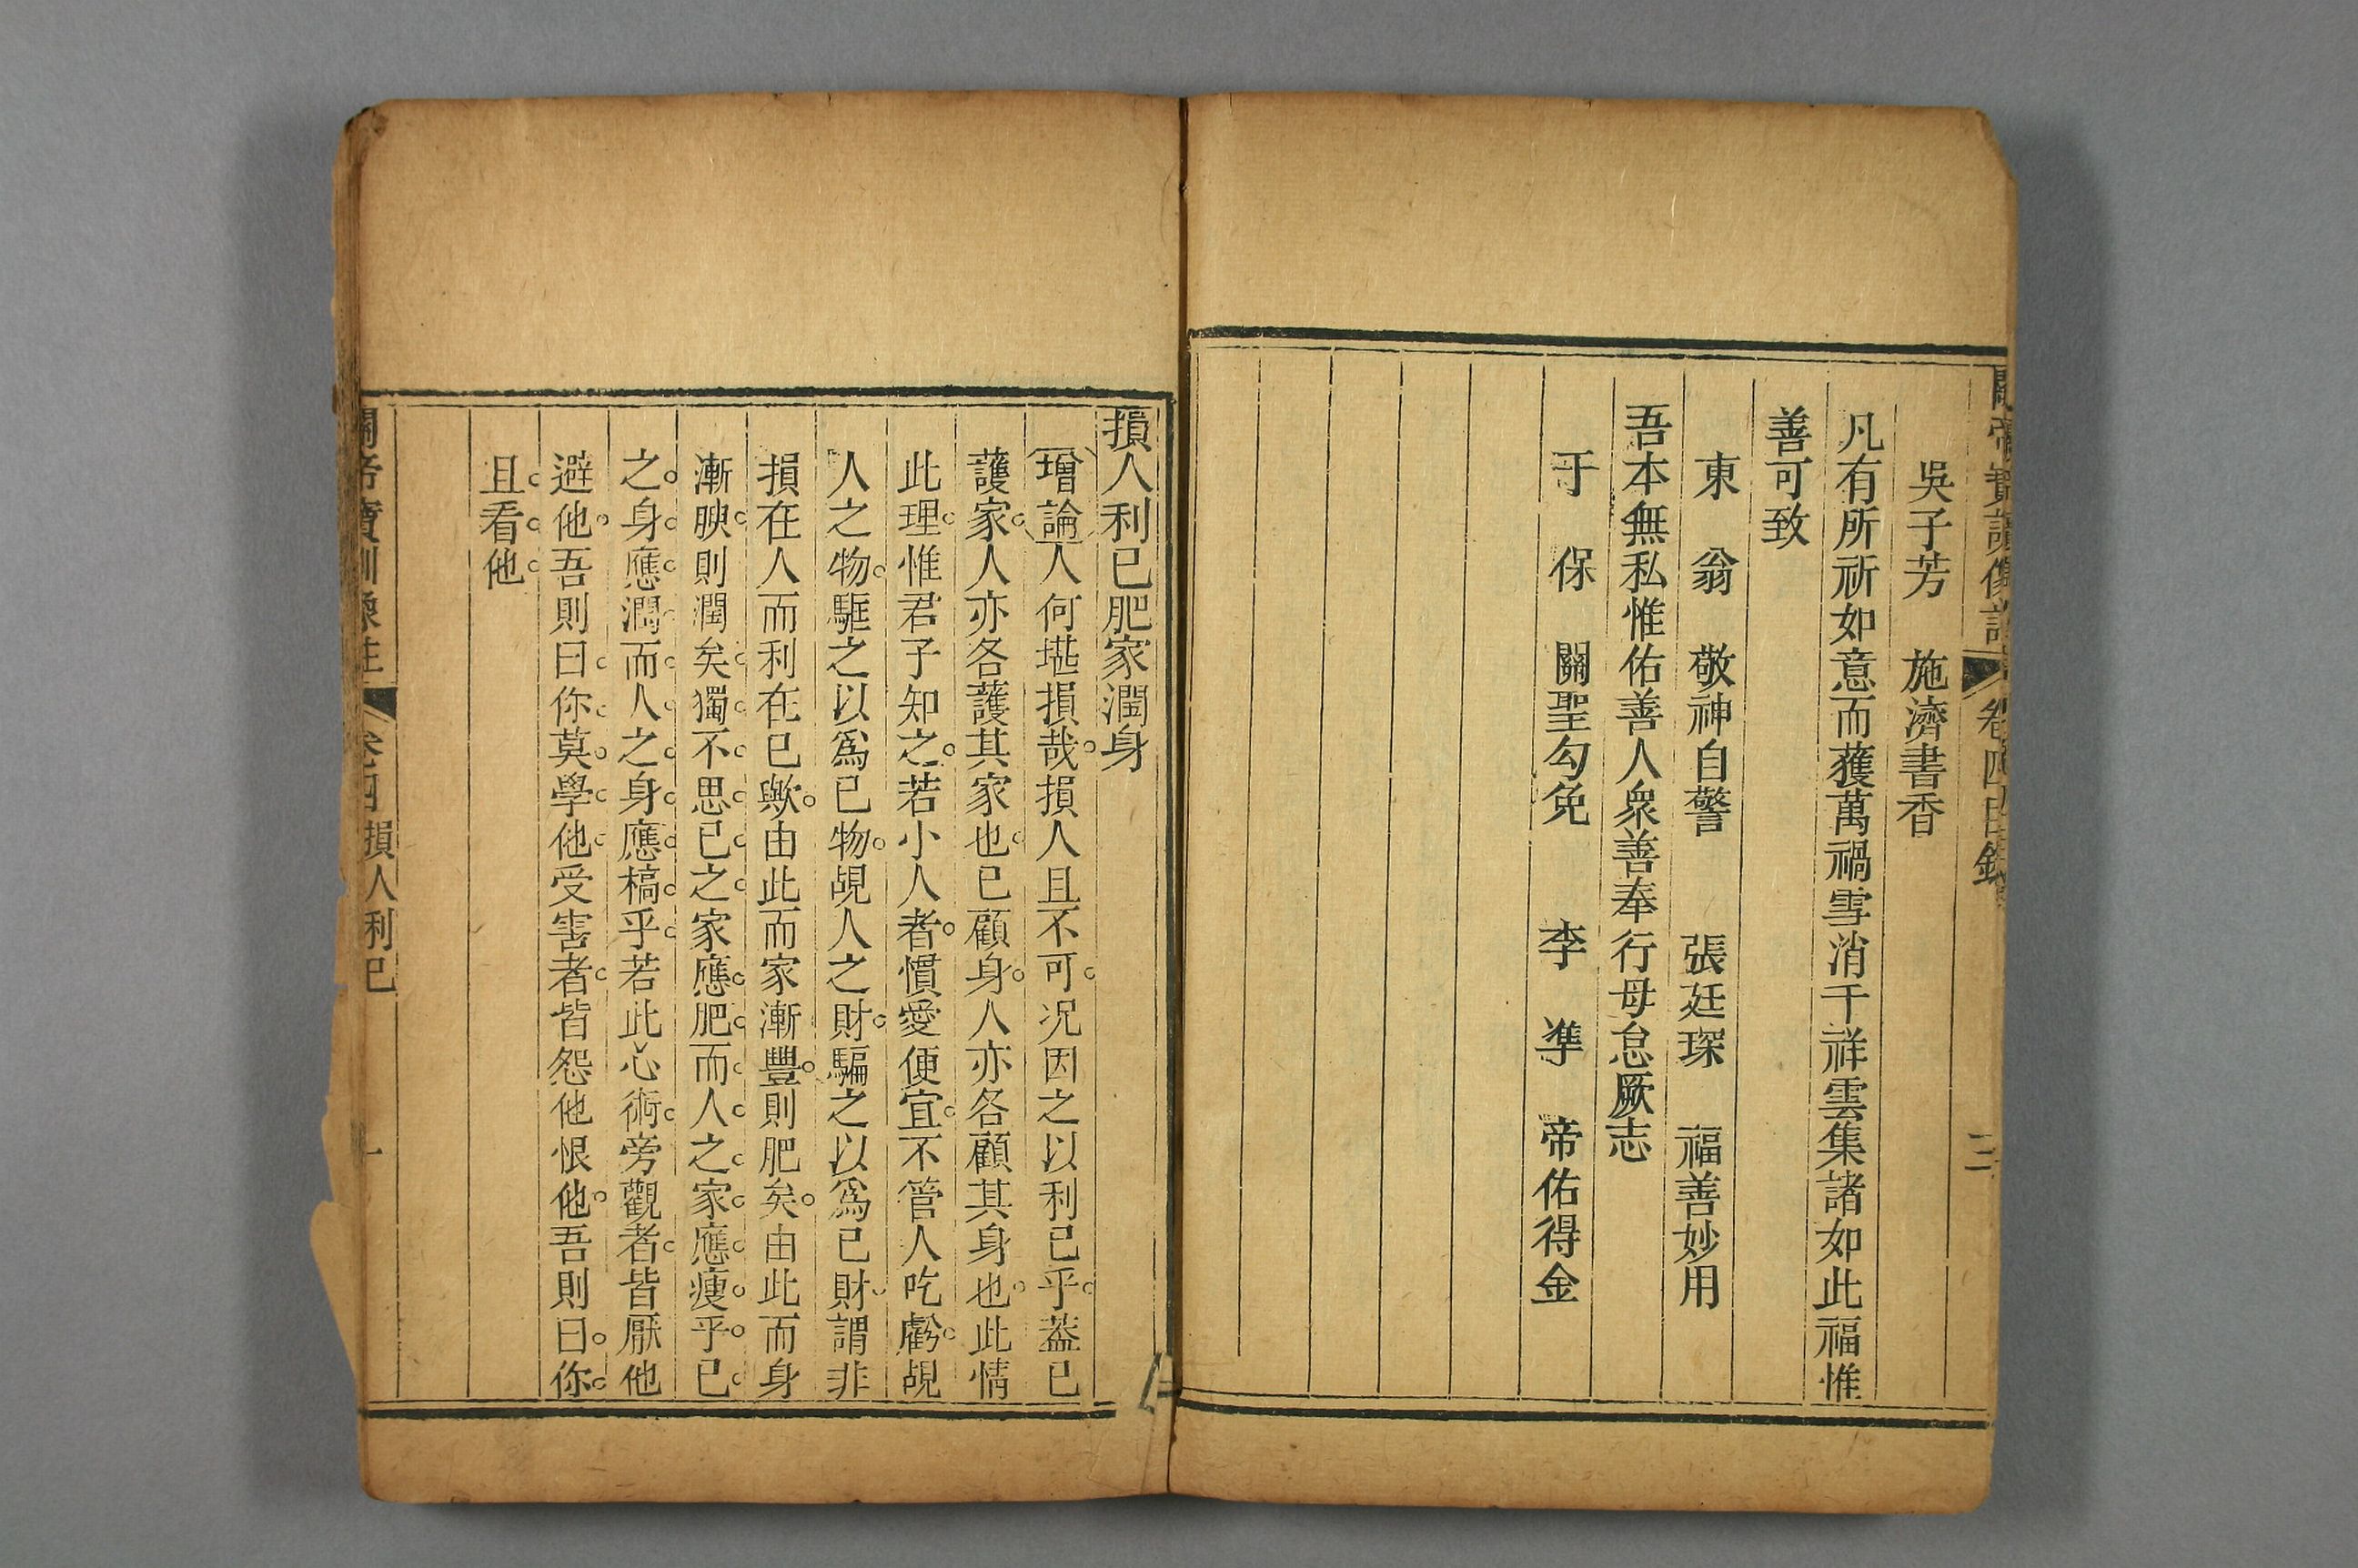 關帝寶訓像註 卷四目錄 三
吳子芳 施濟書香
凡有所祈如意而獲萬禍雪消千祥雲集諸如此福惟
善可致
東 翁 敬神自警 張廷琛 福善妙用
吾本無私惟佑善人衆善奉行毋怠厥志
于 保 關聖勾免 李 凖 帝佑得金
損人利已肥家潤身
增論人何堪損哉損人且不可况因之以利已乎葢已
護家人亦各護其家也已顧身人亦各顧其身也此情
此理惟君子知之若小人者慣愛便宜不管人吃虧覘
人之物駈之以爲已物覘人之財騙之以爲已財謂非
損在人而利在已歟由此而家漸豐則肥矣由此而身
漸腴則潤矣獨不思已之家應肥而人之家應瘦乎已
之身應潤而人之身應槁乎若此心術旁觀者皆厭他
避他吾則曰你莫學他受害者皆怨他恨他吾則曰你
且看他
關帝寶訓像註 卷四 損人利已 一